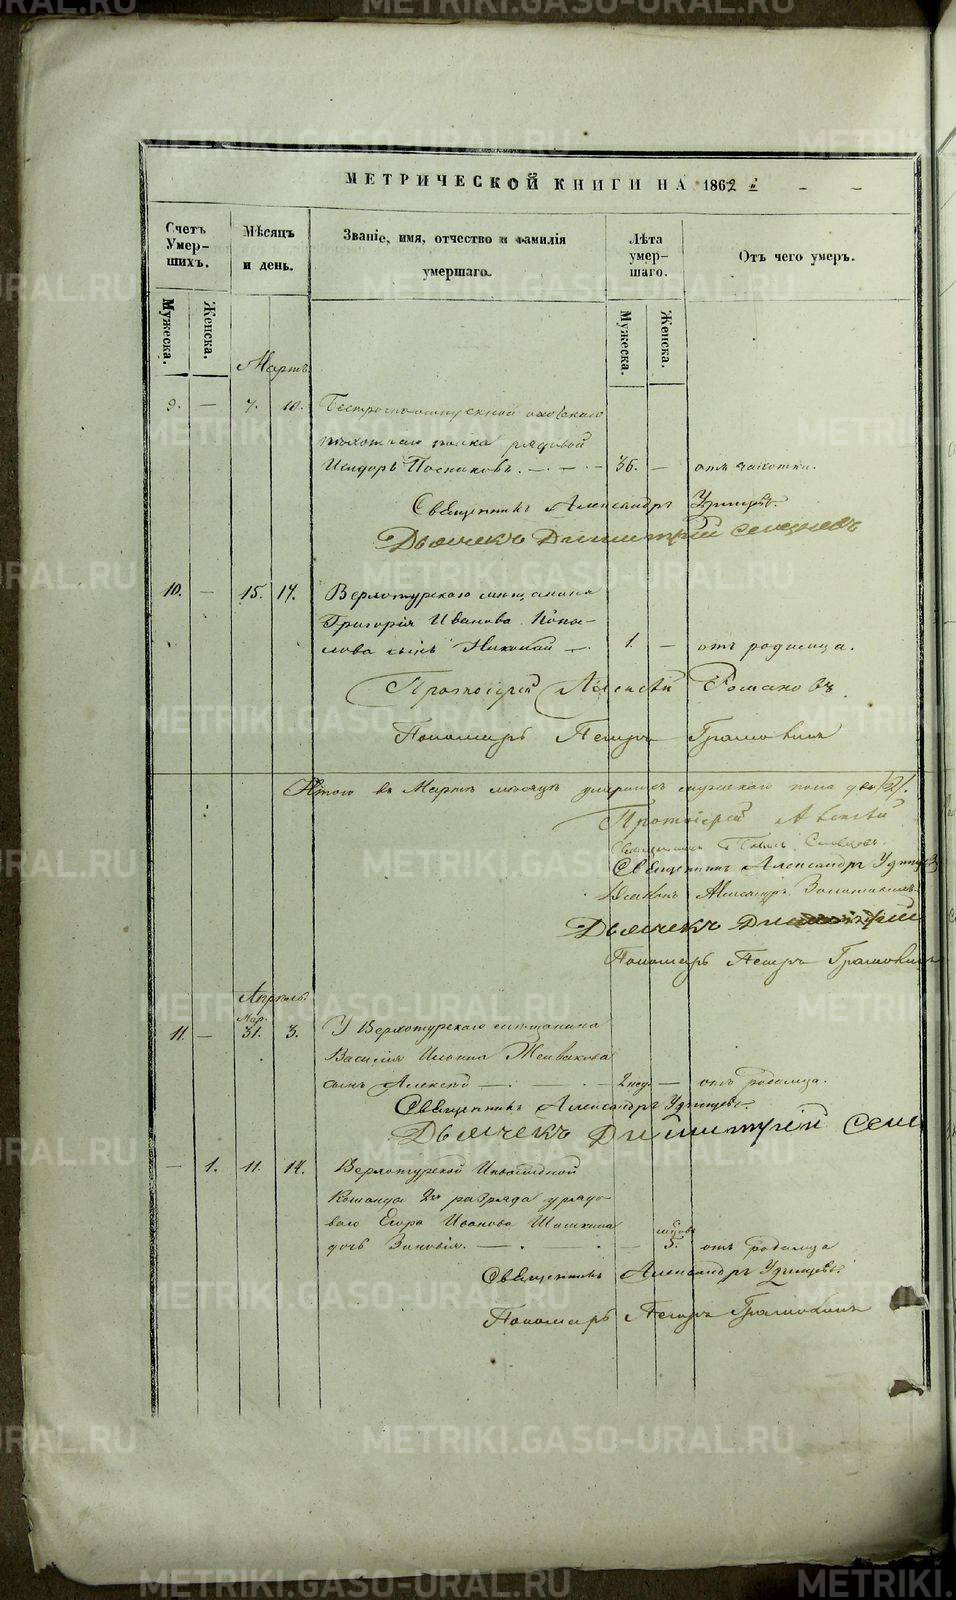 МЕТРИЧЕСКОЙ КНИГИ НА 1862 й
Счетъ Умер-шихъ.
Мѣсяцъ и день.
Званіе, имя, отчество и фамилія умершаго.
Лѣта умер-шаго.
Отъ чего умеръ.
Мужеска.
Женска.
Мужеска.
Женска.
Мартъ
9. — 7. 10.
пѣхотнаго полка рядовой
Исидоръ Постниковъ. — 36. — отъ чахотки.
Священникъ Александръ Удинцевъ.
Дьячекъ Димитрій Селезневъ
10. — 15. 17. Верхотурскаго мѣщанина
Григорія Иванова Копа-
лова сынъ Николай — 1. — отъ родимца.
Протоіерей Алексѣй Романовъ
Пономарь Петръ Грамолинъ
Итого въ Мартѣ мѣсяцѣ умершихъ мужескаго пола два /2/.
Протоіерей Алексѣй
Священникъ Павелъ
Священникъ Александръ Удинцев
Діаконъ Александръ
Дьячекъ Димитрій
Пономарь Петръ Грамолинъ
Апрѣль.
Мар.
11. — 31. 3. У Верхотурскаго мѣщанина
Василія Ильина
сынъ Алексѣй — 2 нед. — отъ родимца.
Священникъ Александръ Удинцевъ.
Дьячекъ Димитрій Селе
— 1. 11. 14. Верхотурской Инвалидной
Команды 2го разряда у рядо-
ваго Егора Иванова Шишкина
дочь Зиновія. — 5. отъ родимца
Священникъ Александръ Удинцевъ
Пономарь Петръ Грамолинъ
METRIKI.GASO-URAL.RU